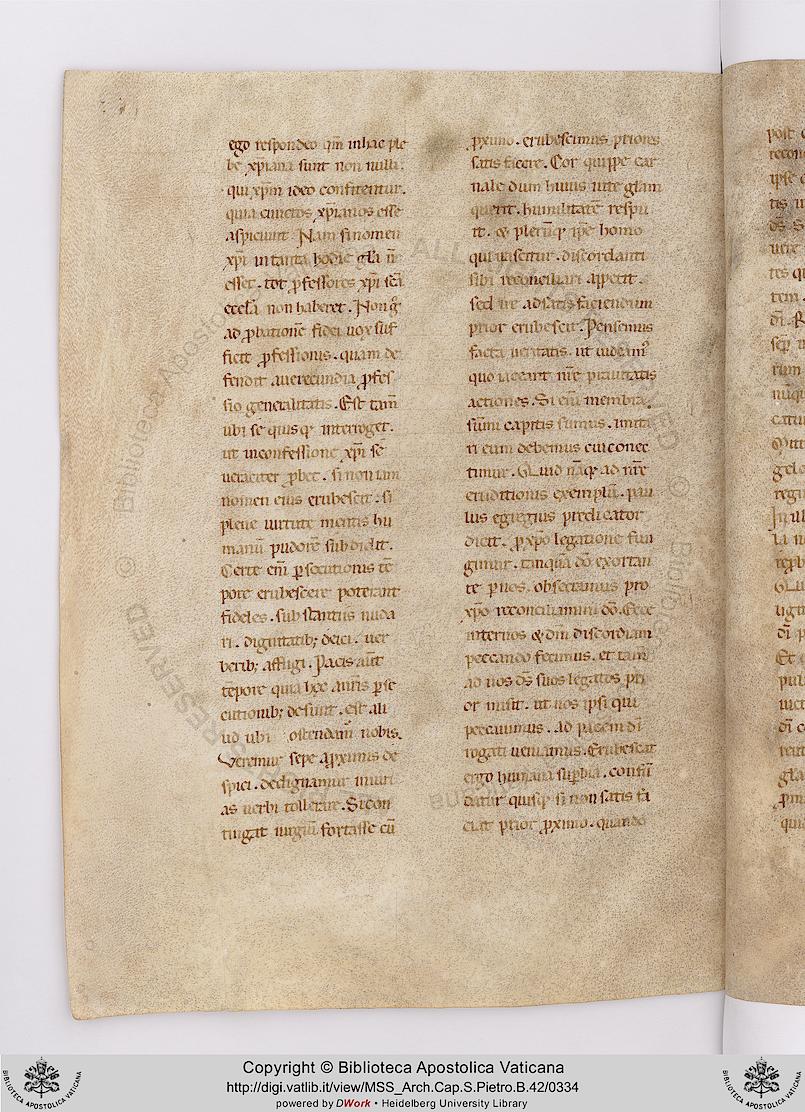 ego respondeo qm̄ inhac ple
be xp̄iana sunt non nulli.
qui xp̄m ideo confitentur.
quia cunctos xp̄ianos esse
aspiciunt. Nam si nomen
xp̄i in tanta hodie gl̄a n̄
esset. tot p̄fessores xp̄i sc̄a
eccl̄a non haberet. Non g̊
ad p̄bationē fidei uox suf
ficit p̄fessionis. quam de
fendit a uerecundia p̄fes
sio generalitatis. Est tam̄
ubi se quisq; interroget.
ut in confessione xp̄i se
ueraciter p̄bet. si non iam
nomen eius erubescit. si
plene uirtute mentis hu
manū pudorē subdidit.
Certe em̄ p̄secutionis tē
pore erubescere poterant
fideles. substantiis nuda
ri. dignitatib; deici. uer
berib; affligi. Pacis aūt
tēpore quia hęc a nr̄is p̄se
cutionib; desunt. est ali
ud ubi ostendam̊ nobis.
Veremur sepe a p̄ximis de
spici. dedignamur iniuri
as uerbi tollerare. Si con
tingat iurgiū fortasse cū
p̄ximo. erubescimus priores
satisfacere. Cor quippe car
nale dum huius uite gl̄am
querit. humilitatē respu
it. & plerūq; ip̄e homo
qui irascitur. discordanti
sibi reconciliari appetit.
sed ire ad satisfaciendum
prior erubescit. Pensemus
facta ueritatis. ut uideam̊
quo iaceant nr̄e prauitatis
actiones. Si eni membra
sūmi capitis sumus. imita
ri eum debemus cui conec
timur. Quid nāq; ad nr̄e
eruditionis exemplū. pau
lus egregius predicator
dicit. p̄ xp̄o legatione fun
gimur. tanquā dō exortan
te p̄ uos. obsecramus pro
xp̄o reconciliamini dō. Ecce
inter nos & dm̄ discordiam
peccando fecimus. et tam̄
ad nos ds̄ suos legatos pri
or misit. ut nos ipsi qui
peccauimus. ad pacem dī
rogati ueniamus. Erubescat
ergo humana supbia. confū
datur quisq; si non satis fa
ciat prior p̄ximo. quando
Copyright © Biblioteca Apostolica Vaticana
http://digi.vatlib.it/view/MSS_Arch.Cap.S.Pietro.B.42/0334
powered by DWork • Heidelberg University Library